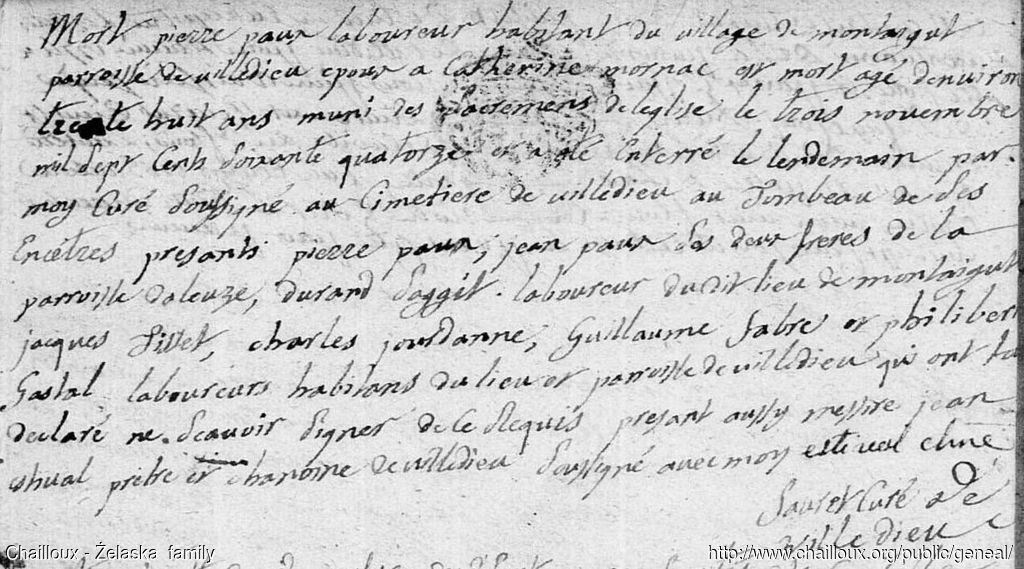 Mort pierre paux laboureur habitant du village de montaigut
parroisse de villedieu epoux a Catherine mornac est mort agé denviron
trente huit ans muni des Sacremens de leglise le trois novembre
mil sept Cents Soixante quatorze et a eté Enterré le lendemain par
moy Curé Soussigné au Cimetiere de villedieu au Tombeau de Ses
Encétres presants pierre paux, jean paux Ses deux freres de la
parroisse daleuze, durand Saggit laboureur du dit lieu de montaigut
jacques Tillet, charles jourdanne, Guillaume fabre et philibert
Gastal laboureurs habitans du lieu et parroisse de villedieu qui ont
declaré ne Scavoir Signer de Ce Requis presant aussy messire jean
pretre et chanoine de villedieu Soussigné avec moy
Sauret Curé de
villedieu
Chailloux - Żelaska family
http://www.chailloux.org/public/geneal/